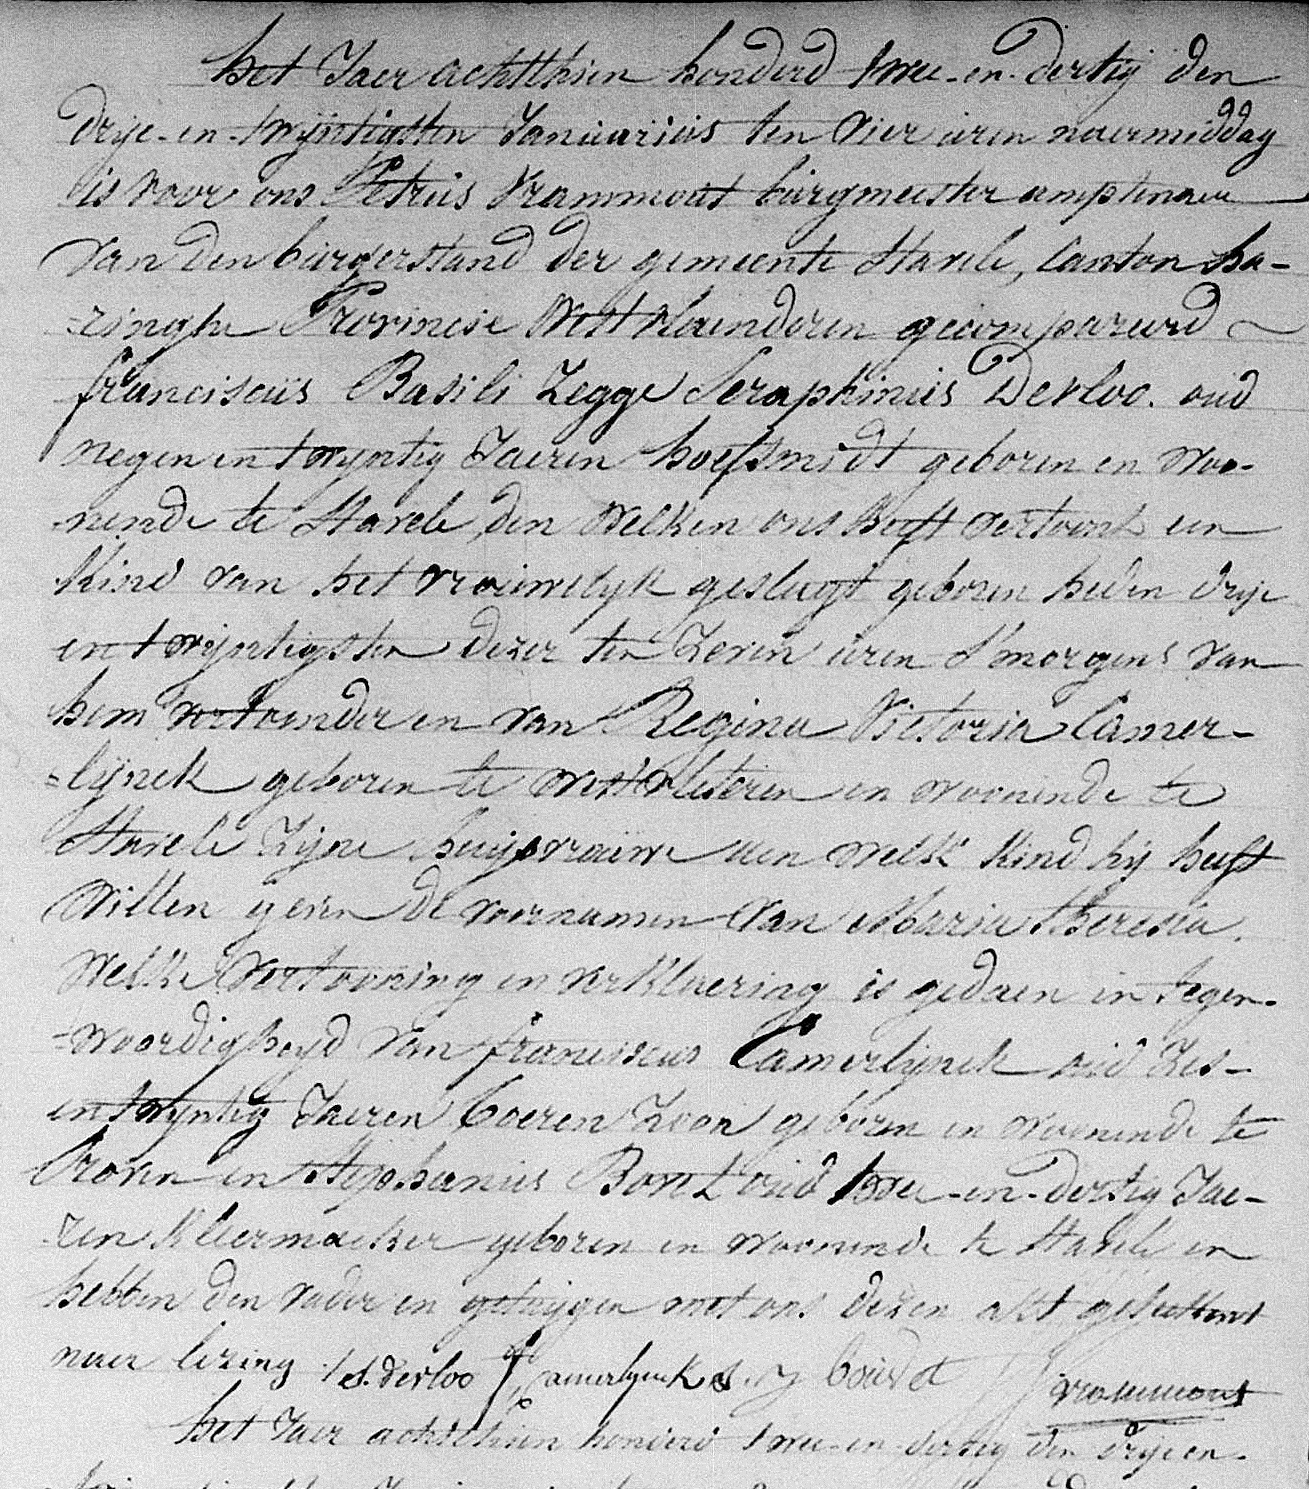 het Jaer achtthien honderd twee-en-dertig den
drije-en-twijntigsten Januarius ten vier uren naermiddag
is voor ons Petrus Vrammout burgmeester amptenaer
van den burgerstand der gemeente Stavele, Canton ha-
=ringhe Provincie West vlaenderen gecompareerd
franciscus Basili Zegge Seraphinus Devloo. oud
negen en twyntig Jaeren hoefsmidt geboren en woo-
nende te Stavele, den Welken ons heeft vertoont een
Kind van het vrouwelyk geslagt geboren heden drije
en twijntigsten dezer ten Zeven uren s'morgens van
hem vertoonder en van Regina Victoria Camer-
=lijnck geboren te westvleteren en woonende te
Stavele Zijne huijsvrouwe aen welk Kind hij heeft
Willen geven de voornamen van Maria theresia.
Welke Vertooning en verKlaering is gedaen in tegen-
=woordigheyd van franciscus Camerlijnck oud Zes-
en twyntig Jaeren boeren Zoon geboren en woonende te
Proven en Stephanus oud twee-en-dertig Jae-
ren Kleermaeker geboren en woonende te Stavele en
hebben den vader en getuijgen met ons dezen akt geteekent
naer lezing s. devloo f. Camerlynck s. Vrammout
het Jaer achtthien honderd twee-en-dertig den drije en-